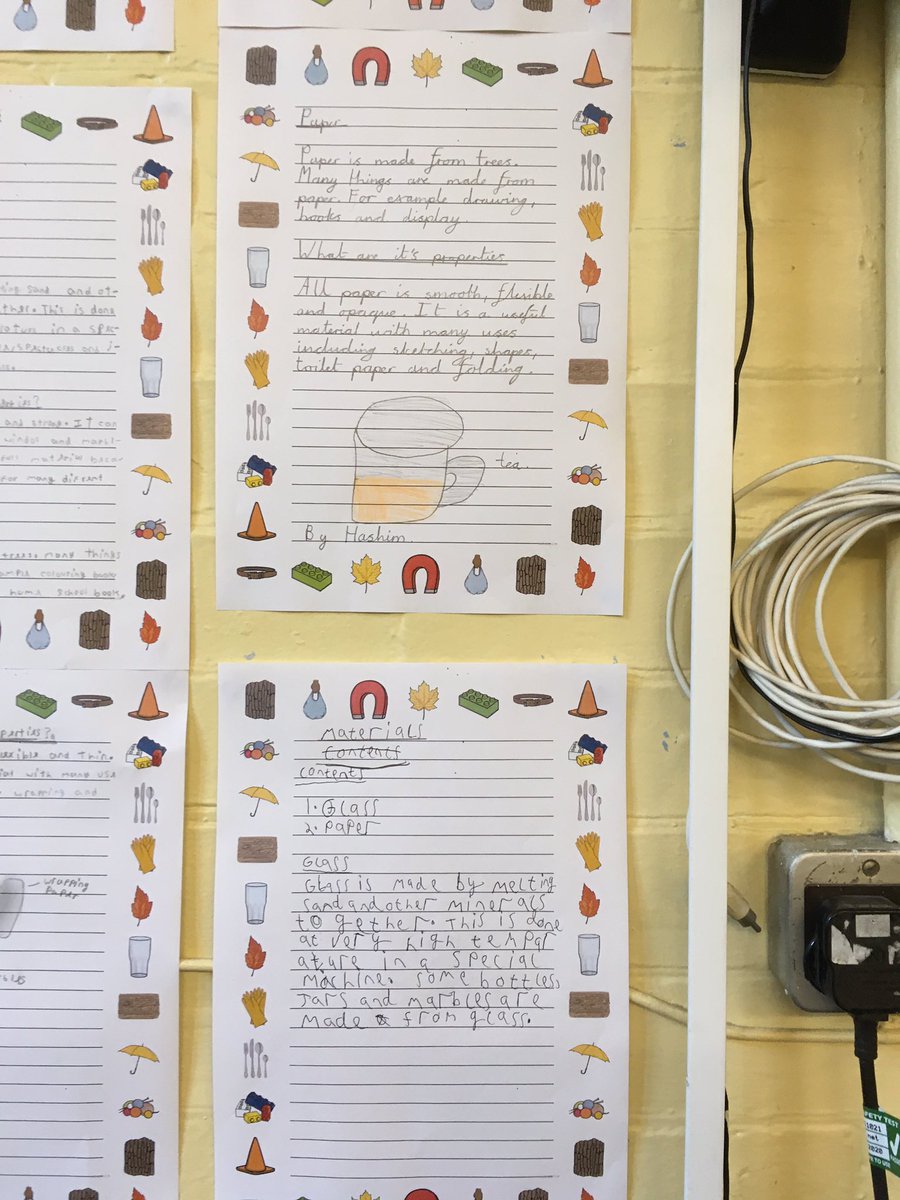 Paper
Paper is made from trees.
Many things are made from
paper. For example drawing,
books and display.
What are it's properties
All paper is smooth, flexible
and opaque. It is a useful
material with many uses
including sketching, shapes,
toilet paper and folding.
tea.
By Hashim.
Materials
contents
contents
1. Glass
2. Paper
Glass
Glass is made by melting
sand and other minerals
to gether. This is done
at very high tempar
ature in a special
machine. some bottles,
Jars and marbles are
made from glass.
sand and ot-
ther. This is done
and strong. It can
for many difrent
many things
colouring book
home school book,
and thin.
with many use
wrapping and
wrapping
paper
FETY TEST